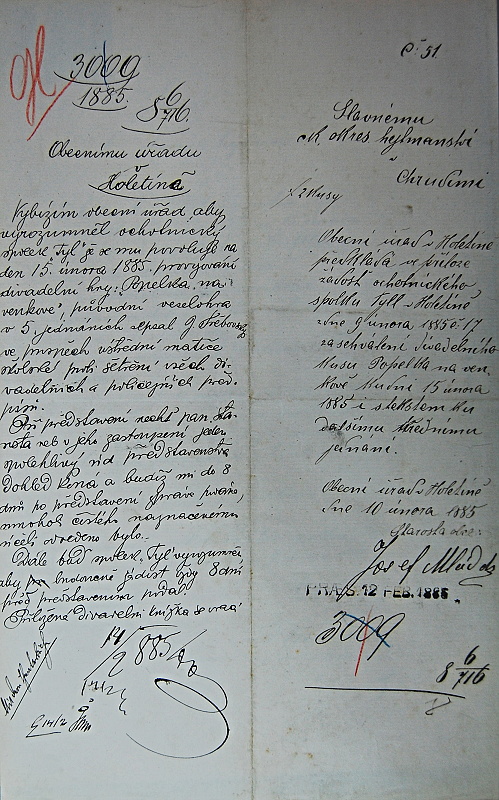 3009
1885.
8 6/716.
Obecnímu úřadu
v
Holetíně
Vybízím obecní úřad, aby
vyrozuměl ochotnický
spolek "Tyl" že se mu povoluje na
den 15. února 1885 provozování
divadelní hry: Popelka na
venkově, původní veselohra
v 5. jednáních sepsal J. Střebovský
ve prospěch ústřední matice
školské proti šetření všech di-
vadelních a policejních před-
pisů.
Při představení nechť pan sta-
rosta neb v jeho zastoupení jeden
spolehlivý úd představenstva
dohled koná a budiž mi do 8
dnů po představení zpráva podána,
mnoho čistého naznačenému
účeli odvedeno bylo.
Dále buď spolek "Tyl" vyrozuměn
aby budoucně žádost vždy 8 dní
před představením podal
Přiložená divadelní knížka se vrací
14/2 885
14/2
14/2
Č 51.
Slavnému
c.k. okres. hejtmanství
v Chrudimi
2 kusy
Obecní úřad v Holetíně
předkládá v příloze
žádost ochotnického
spolku Tyll v Holetíně
z dne 9 února 1885 č. 17
za schválení divadelního
kusu Popelka na ven-
kově ku dni 15 února
1885 i s tekstem ku
dalšímu úřednímu
jednání.
Obecní úřad v Holetíně
dne 10 února 1885
Starosta obce:
Josef Mládek
PRAES. 12 FEB. 1885.
3009
8 6/716